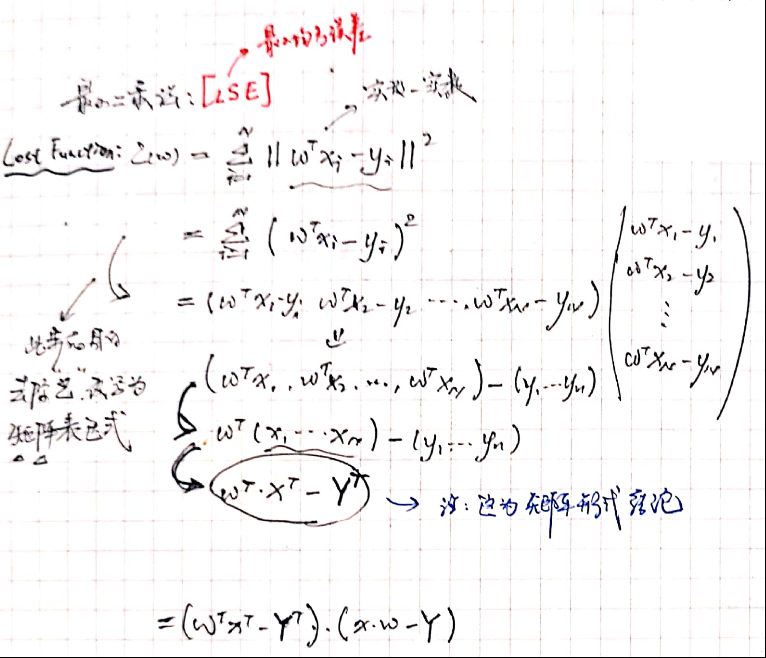 最小均方误差
最小二乘法: [LSE]
实数 - 实数
Lost Function: L(w) = Σ_{i=1}^{N} || w^T x_i - y_i ||^2
= Σ_{i=1}^{N} ( w^T x_i - y_i )^2
= (w^T x_1 - y_1 w^T x_2 - y_2 ⋯ w^T x_N - y_N) ( w^T x_1 - y_1
w^T x_2 - y_2
⋮
w^T x_N - y_N )
此步的目的
去除“Σ”, 改写为
矩阵表达式
(w^T x_1, w^T x_2, ..., w^T x_N) - (y_1 ... y_N)
w^T (x_1 ⋯ x_N) - (y_1 ... y_N)
w^T · X^T - Y^T → 注: 这为矩阵形式结论
= (w^T x^T - Y^T) · (x · w - Y)